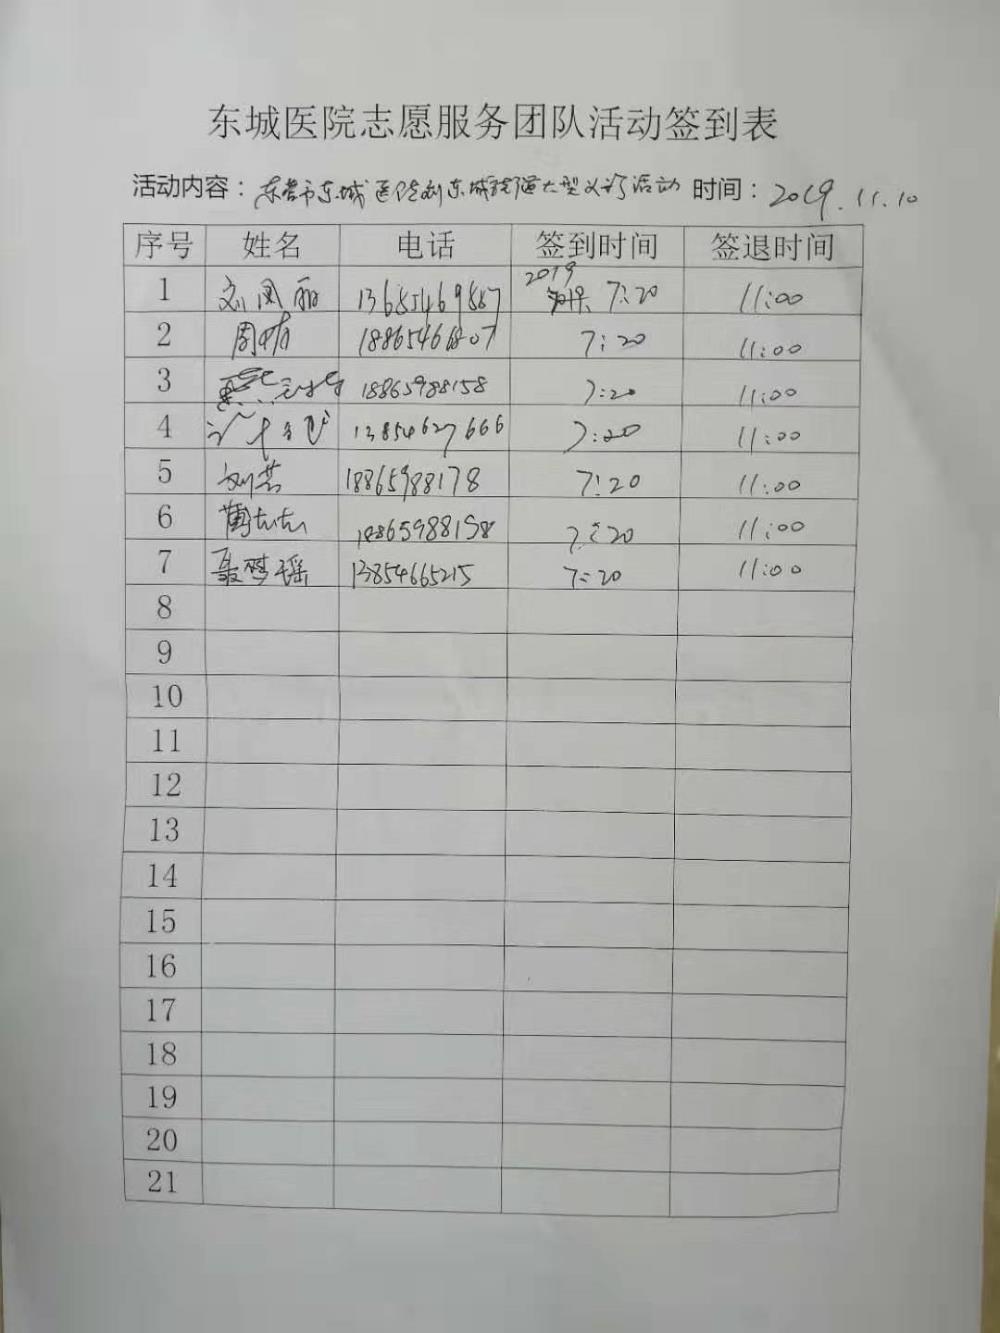 东城医院志愿服务团队活动签到表
活动内容：东营市东城医院到东城街道大型义诊活动 时间：2019.11.10
序号 姓名 电话 签到时间 签退时间
1 刘凤丽 2019 7:20 11:00
2 周 7:20 11:00
3 18865988158 7:20 11:00
4 13854627666 7:20 11:00
5 刘芸 18865988178 7:20 11:00
6 18865988158 7:20 11:00
7 聂梦瑶 13854665215 7:20 11:00
8
9
10
11
12
13
14
15
16
17
18
19
20
21